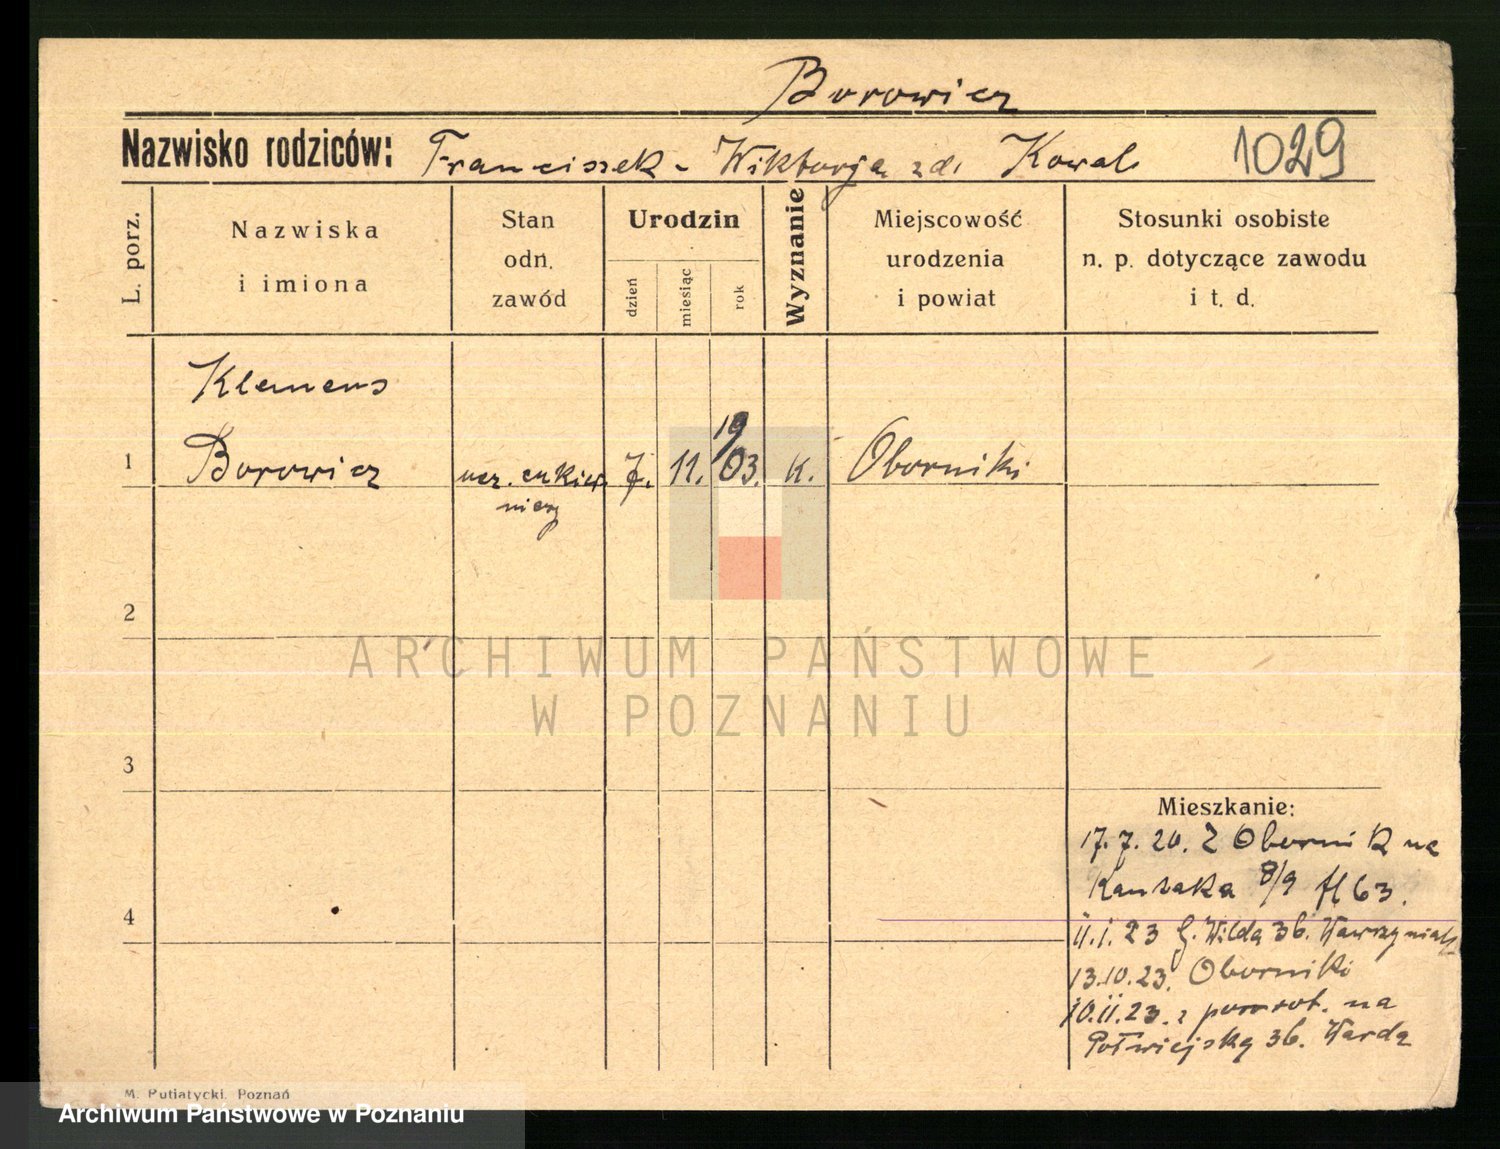 Borowicz
Nazwisko rodziców: Franciszek - Wiktorja zd. Kowal 1029
L. porz.
Nazwiska
i imiona
Stan
odn.
zawód
Urodzin
dzień
miesiąc
rok
Wyznanie
Miejscowość
urodzenia
i powiat
Stosunki osobiste
n. p. dotyczące zawodu
i t. d.
Klemens
19
1 Borowicz ucz. cukier 7. 11. 03. K. Oborniki
niczy
2
ARCHIWUM PAŃSTWOWE
W POZNANIU
3
Mieszkanie:
17.7.20. Z Obornik na
Kantaka 8/9 fl 63.
4
11.1.23 G. Wilda 36. Wawrzyniak
13.10.23. Oborniki
10.11.23. z powrot. na
Półwiejską 36. Warda
M. Putiatycki, Poznań
Archiwum Państwowe w Poznaniu